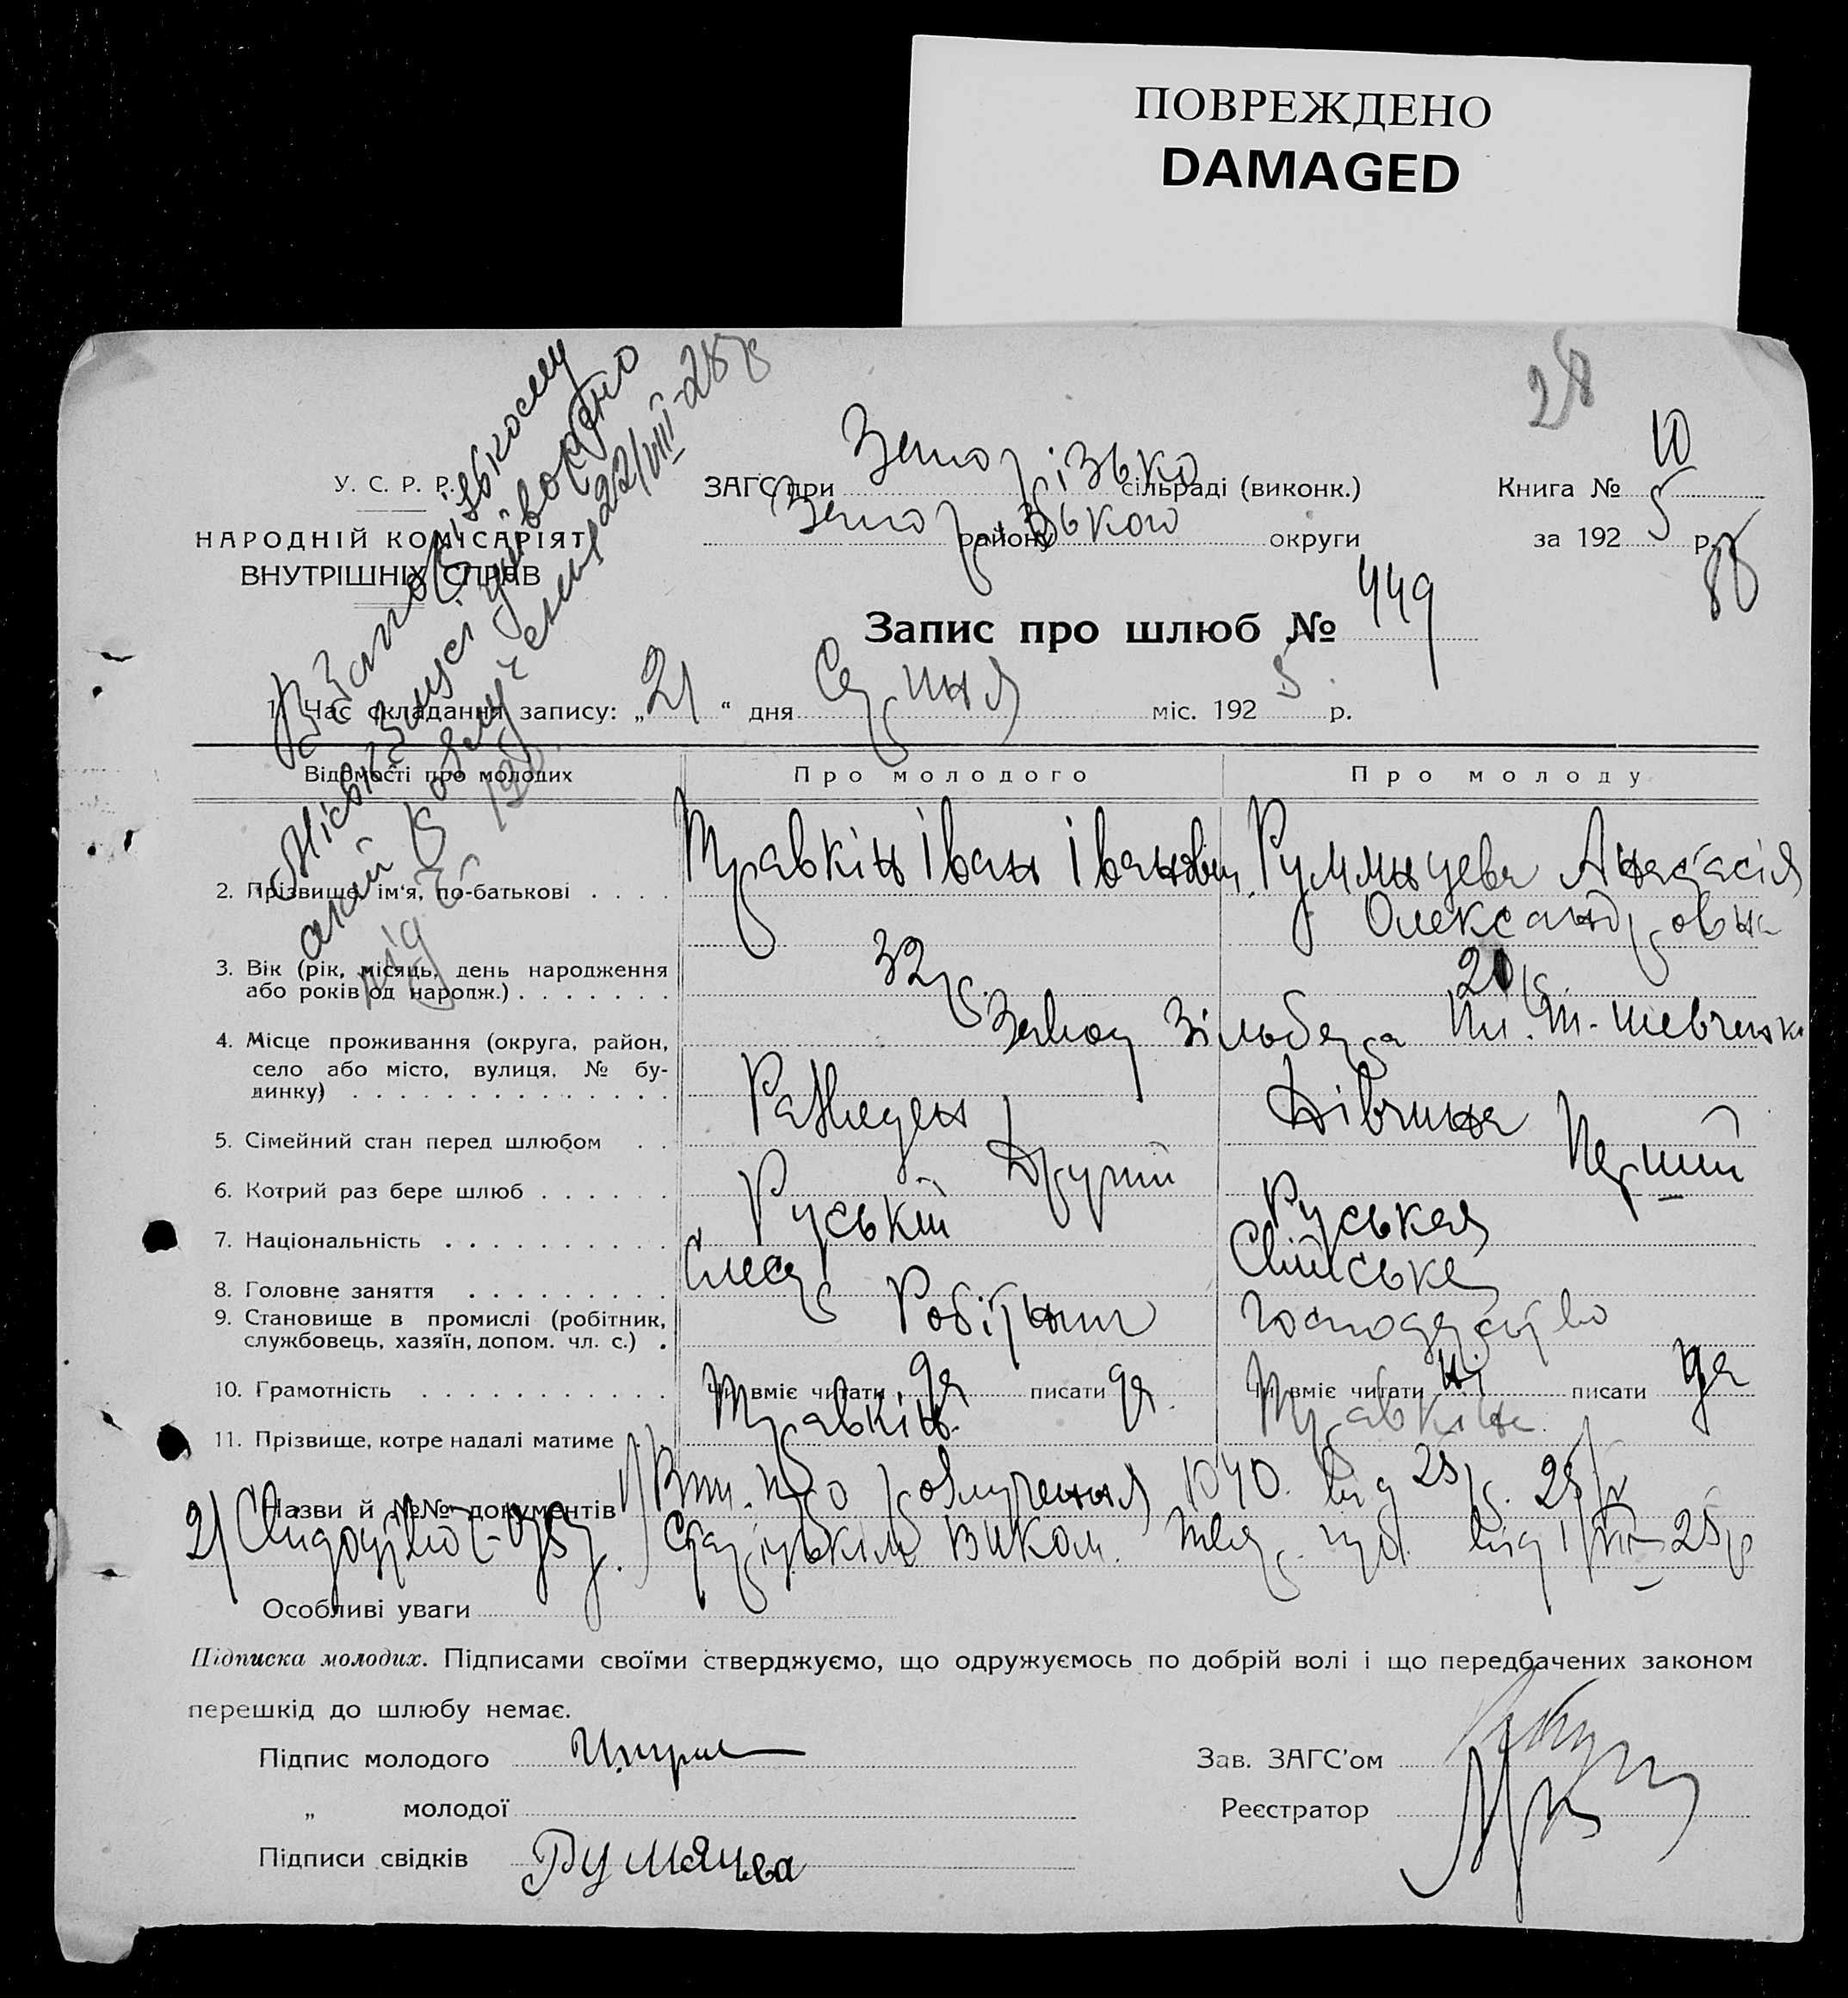 ПОВРЕЖДЕНО
DAMAGED
28
У. С. Р. Р.
НАРОДНІЙ КОМІСАРІЯТ
ВНУТРІШНІХ СПРАВ
ЗАГС при Запорізько сільраді (виконк.)
району Запорізького округи
Книга № 10
за 192 5 р.
88
Запис про шлюб № 449
1. Час складання запису: „21“ дня Серпня міс. 192 5 р.
Відомості про молодих
Про молодого
Про молоду
2. Прізвище, ім'я, по-батькові . . . . Травкін Іван Іванович Румянцева Анастасія
Олександровна
3. Вік (рік, місяць, день народження
або років од народж.) . . . . . . . 32 р. 20 р.
4. Місце проживання (округа, район,
село або місто, вулиця, № бу-
динку) Завод Зільбера Пл. Т. Шевченка
5. Сімейний стан перед шлюбом . . Разведен Дівчина
6. Котрий раз бере шлюб . . . . . . Другий Перший
7. Національність . . . . . . . . . . Руській Руськая
8. Головне заняття . . . . . . . . . Слесар Сільське
9. Становище в промислі (робітник,
службовець, хазяїн, допом. чл. с.) . Робітник господарство
10. Грамотність . . . . . . . . . . . Чи вміє читати да писати да Чи вміє читати ні писати да
11. Прізвище, котре надалі матиме . . Травкін. Травкіна.
Назви й №№ документів 1/ Вип. про розлучення 1040. від 25 р.
2/ виком. губ. від 25 р
Особливі уваги
Підписка молодих. Підписами своїми стверджуємо, що одружуємось по добрій волі і що передбачених законом
перешкід до шлюбу немає.
Підпис молодого
„ молодої
Підписи свідків Румянцева
Зав. ЗАГС'ом
Реєстратор
В Запорізькому
22/VIII-28 р